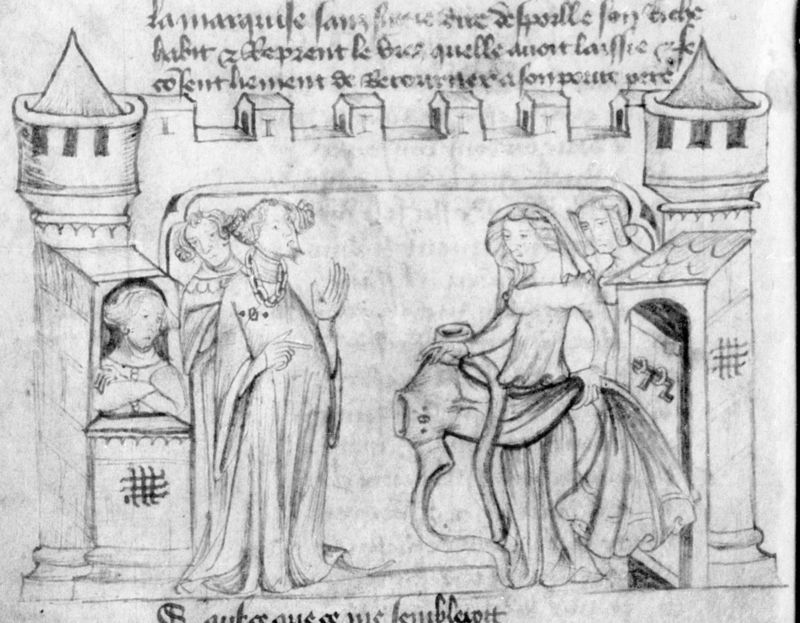 la marquise sans sur dire despoille son riche
habit & Reprent le sien quelle avoit laissie & se
cōsent liement de Retourner a son povre pere
que ce me semble